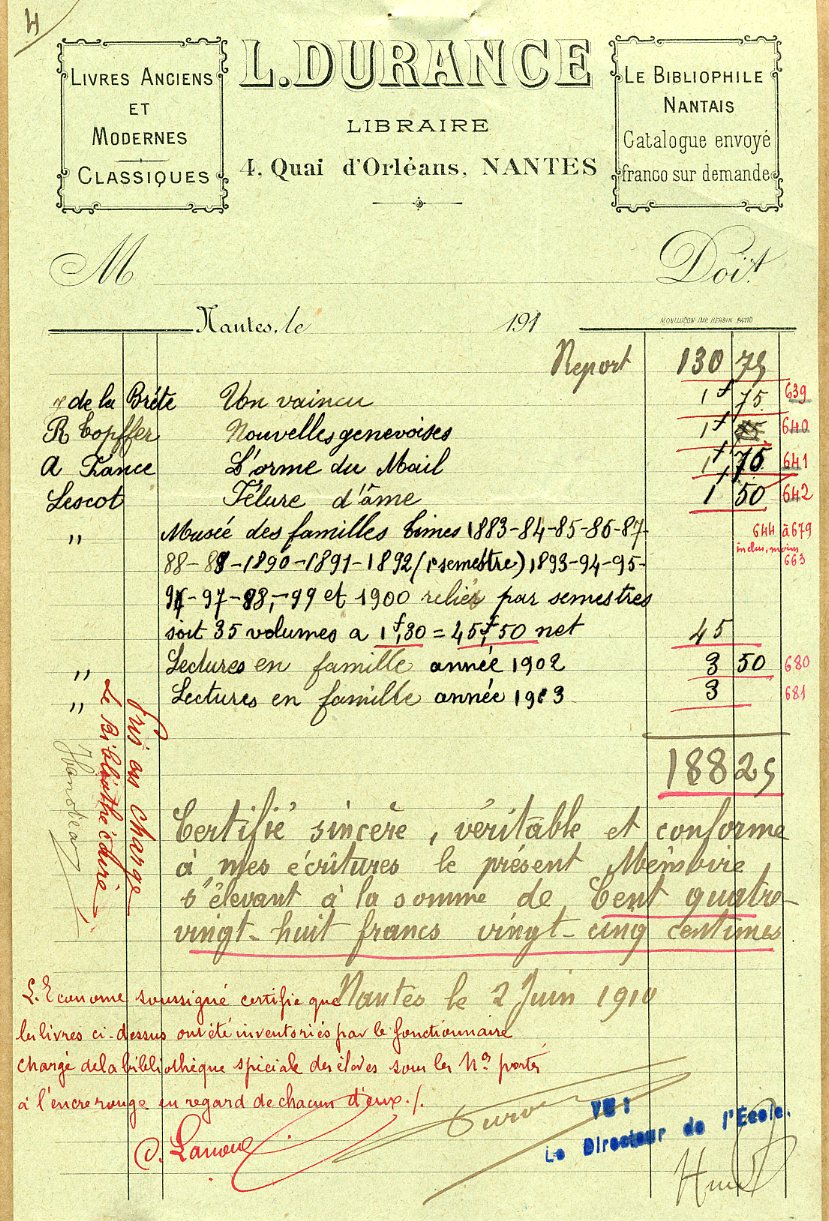 4
LIVRES ANCIENS
ET
MODERNES
CLASSIQUES
L. DURANCE
LIBRAIRE
4, Quai d'Orléans, NANTES
LE BIBLIOPHILE
NANTAIS
Catalogue envoyé
franco sur demande
M Doit
Nantes, le 191
Report 130 75
de la Brète Un vaincu 1f 75 639
R Topffer Nouvelles genevoises 1f 640
A France L'orme du Mail 1f 75 641
Lescot Fêlure d'âme 1f 50 642
" Musée des familles times 1883-84-85-86-87 644 à 679
88-89-1890-1891-1892 (1er semestre) 1893-94-95- inclus, moins 663
96-97-98,-99 et 1900 reliés par semestres
soit 35 volumes a 1f,30 = 45f,50 net 45
" Lectures en famille année 1902 3 50 680
" Lectures en famille année 1903 3 681
188 25
Pris en charge
Le Bibliothécaire
Certifié sincère, véritable et conforme
à mes écritures le présent Mémoire
s'élevant à la somme de Cent quatre-
vingt-huit francs vingt-cinq centimes
Nantes le 2 Juin 1910
L'Econome soussigné certifie que
les livres ci-dessus ont été inventoriés par le fonctionnaire
chargé de la bibliothèque spéciale des élèves sous les Nos portés
à l'encre rouge en regard de chacun d'eux./.
VU :
Le Directeur de l'École.